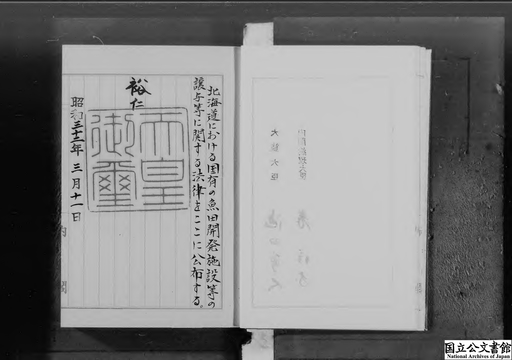 北海道における国有の魚田開発施設等の
譲与等に関する法律をここに公布する。
裕仁
天皇
御璽
昭和三十三年三月十一日
国立公文書館
National Archives of Japan